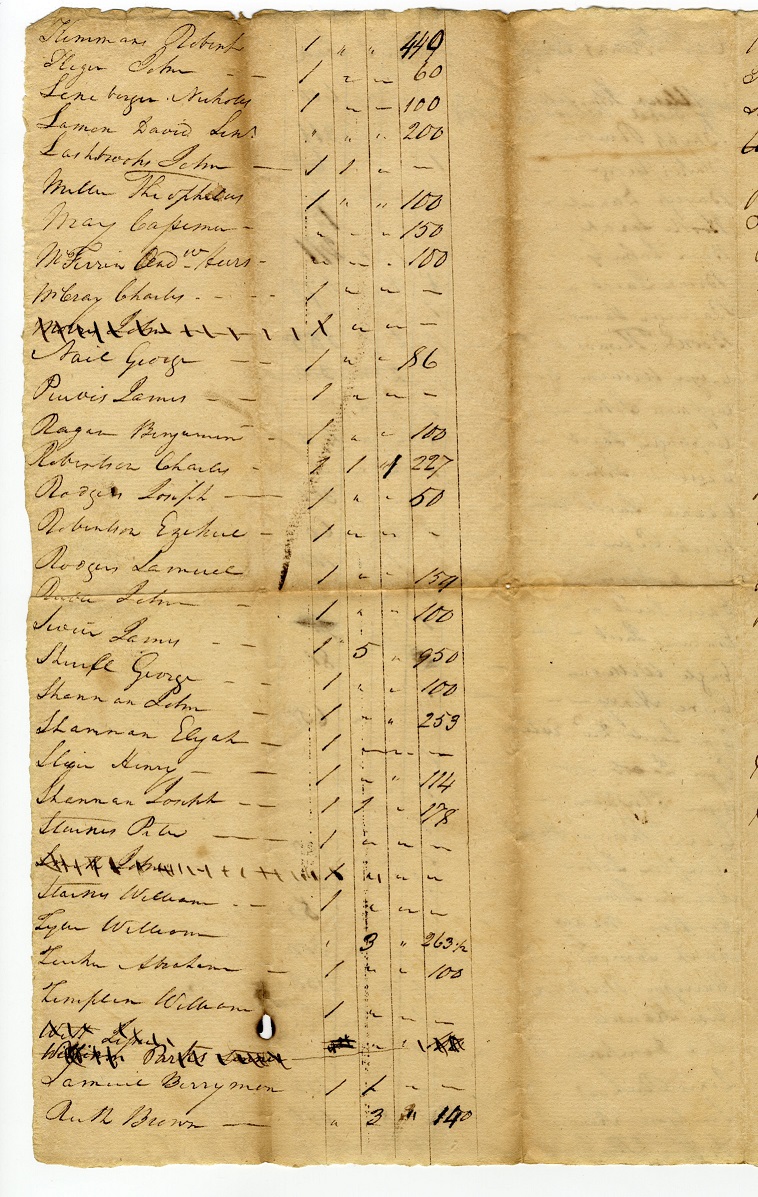 Kimmans Robert 1 " " 449
Kiger John - - 1 " - 60
Linebarger Nicholas 1 - - 100
Lamon David Senr " " " 200
Lashbrooks John - 1 1 " -
Miller Theophelus 1 " " 100
May - " " " 150
McFerrin Andw Heirs - " " - 100
McCray Charles - - - 1 " " -
John 1 " " -
Nail George - - 1 " " 86
Purvis James - - 1 " " -
Ragan Benjamin - 1 " " 100
Robertson Charles - 1 1 1 227
Rodgers Joseph - 1 " " 50
Robertson Ezekiel - 1 " " -
Rodgers Samuel 1 " " 154
John - 1 " " 100
Sevier James - - 1 5 " 950
George - - 1 " " 100
Shannan John - 1 " " 253
Shannan Elijah - 1 - - -
Sliger Henry - - 1 " " 114
Shannan Joseph - - 1 1 " 178
Starnes Peter - 1 " " -
John 1 " " "
Starnes William - - 1 " " -
Tyler William " 3 " 263 1/2
Tucker Abraham - 1 " " 100
Templin William 1 " - -
Samuel Berryman 1 1 " -
Ruth Brown - " 3 " 140